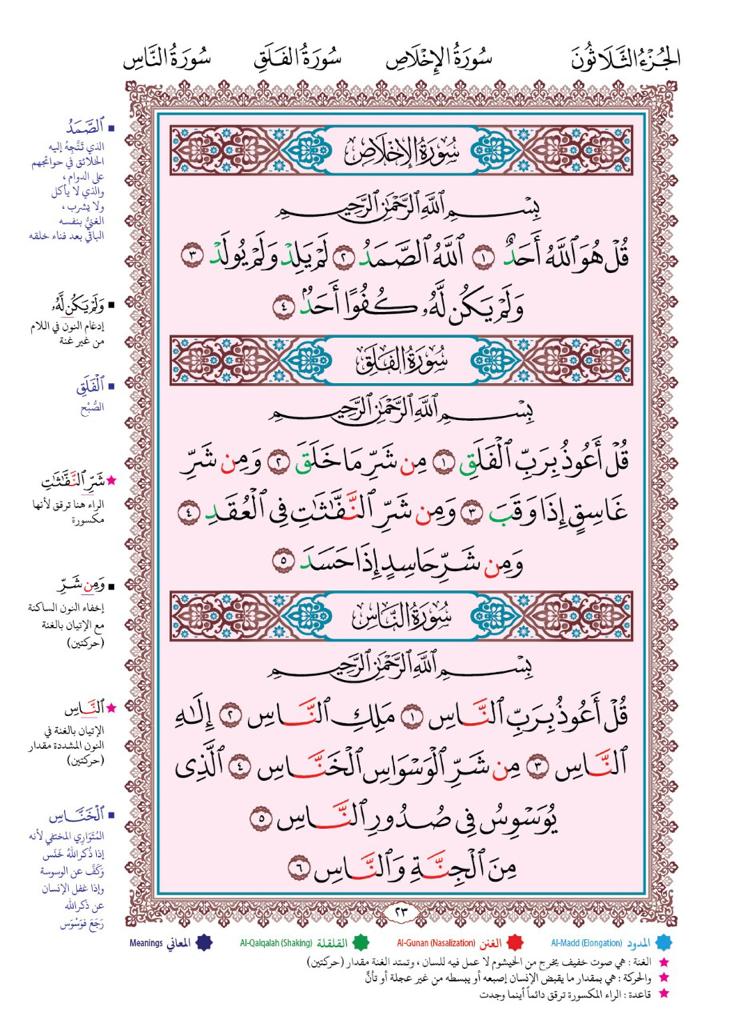 الجُزْءُ الثَّلَاثُونَ سُورَةُ الإِخْلَاصِ سُورَةُ الفَلَقِ سُورَةُ النَّاسِ
سُورَةُ الإِخْلَاصِ
بِسْمِ اللَّهِ الرَّحْمَٰنِ الرَّحِيمِ
قُلْ هُوَ اللَّهُ أَحَدٌ ١ اللَّهُ الصَّمَدُ ٢ لَمْ يَلِدْ وَلَمْ يُولَدْ ٣
وَلَمْ يَكُن لَّهُۥ كُفُوًا أَحَدٌۢ ٤
سُورَةُ الفَلَقِ
بِسْمِ اللَّهِ الرَّحْمَٰنِ الرَّحِيمِ
قُلْ أَعُوذُ بِرَبِّ ٱلْفَلَقِ ١ مِن شَرِّ مَا خَلَقَ ٢ وَمِن شَرِّ
غَاسِقٍ إِذَا وَقَبَ ٣ وَمِن شَرِّ ٱلنَّفَّٰثَٰتِ فِى ٱلْعُقَدِ ٤
وَمِن شَرِّ حَاسِدٍ إِذَا حَسَدَ ٥
سُورَةُ النَّاسِ
بِسْمِ اللَّهِ الرَّحْمَٰنِ الرَّحِيمِ
قُلْ أَعُوذُ بِرَبِّ ٱلنَّاسِ ١ مَلِكِ ٱلنَّاسِ ٢ إِلَٰهِ
ٱلنَّاسِ ٣ مِن شَرِّ ٱلْوَسْوَاسِ ٱلْخَنَّاسِ ٤ ٱلَّذِى
يُوَسْوِسُ فِى صُدُورِ ٱلنَّاسِ ٥
مِنَ ٱلْجِنَّةِ وَٱلنَّاسِ ٦
ٱلصَّمَدُ
الذي تَتَّجِهُ إليه
الخلائق في حوائجهم
على الدوام ،
والذي لا يأكل
ولا يشرب ،
الغنيُّ بنفسه
الباقي بعد فناء خلقه
وَلَمْ يَكُن لَّهُۥ
إدغام النون في اللام
من غير غنة
ٱلْفَلَقِ
الصُّبْح
شَرِّ ٱلنَّفَّٰثَٰتِ
الراء هنا ترقق لأنها
مكسورة
وَمِن شَرِّ
إخفاء النون الساكنة
مع الإتيان بالغنة
(حركتين)
ٱلنَّاسِ
الإتيان بالغنة في
النون المشددة مقدار
(حركتين)
ٱلْخَنَّاسِ
المُتَوَارِي المختفي لأنه
إذا ذُكرَ اللهُ خَنَس
وَكَفَّ عن الوسوسة
وإذا غفل الإنسان
عن ذكر الله
رَجَعَ فوَسْوَس
٢٣
المدود Al-Madd (Elongation) الغنن Al-Gunan (Nasalization) القلقلة Al-Qalqalah (Shaking) المعاني Meanings
الغنة : هي صوت خفيف يخرج من الخيشوم لا عمل فيه للسان ، وتمتد الغنة مقدار (حركتين)
والحركة : هي بمقدار ما يقبض الإنسان إصبعه أو يبسطه من غير عجلة أو تأنٍّ
قاعدة : الراء المكسورة ترقق دائماً أينما وجدت